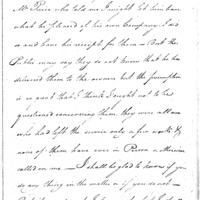 Mr Pierce who told me I might let him have
what he pleased of his own Company I did
so and have his receipt for them – But the
Public may say they do not know that he has
delivered them to the owners but the presumption
is so great that I think I ought not to be
questioned concerning them. they were all men
who had left the service only a few weeks &
none of them have ever in Person or
called on me – I shall be glad to know if you
do any thing in the matter or if you do not –